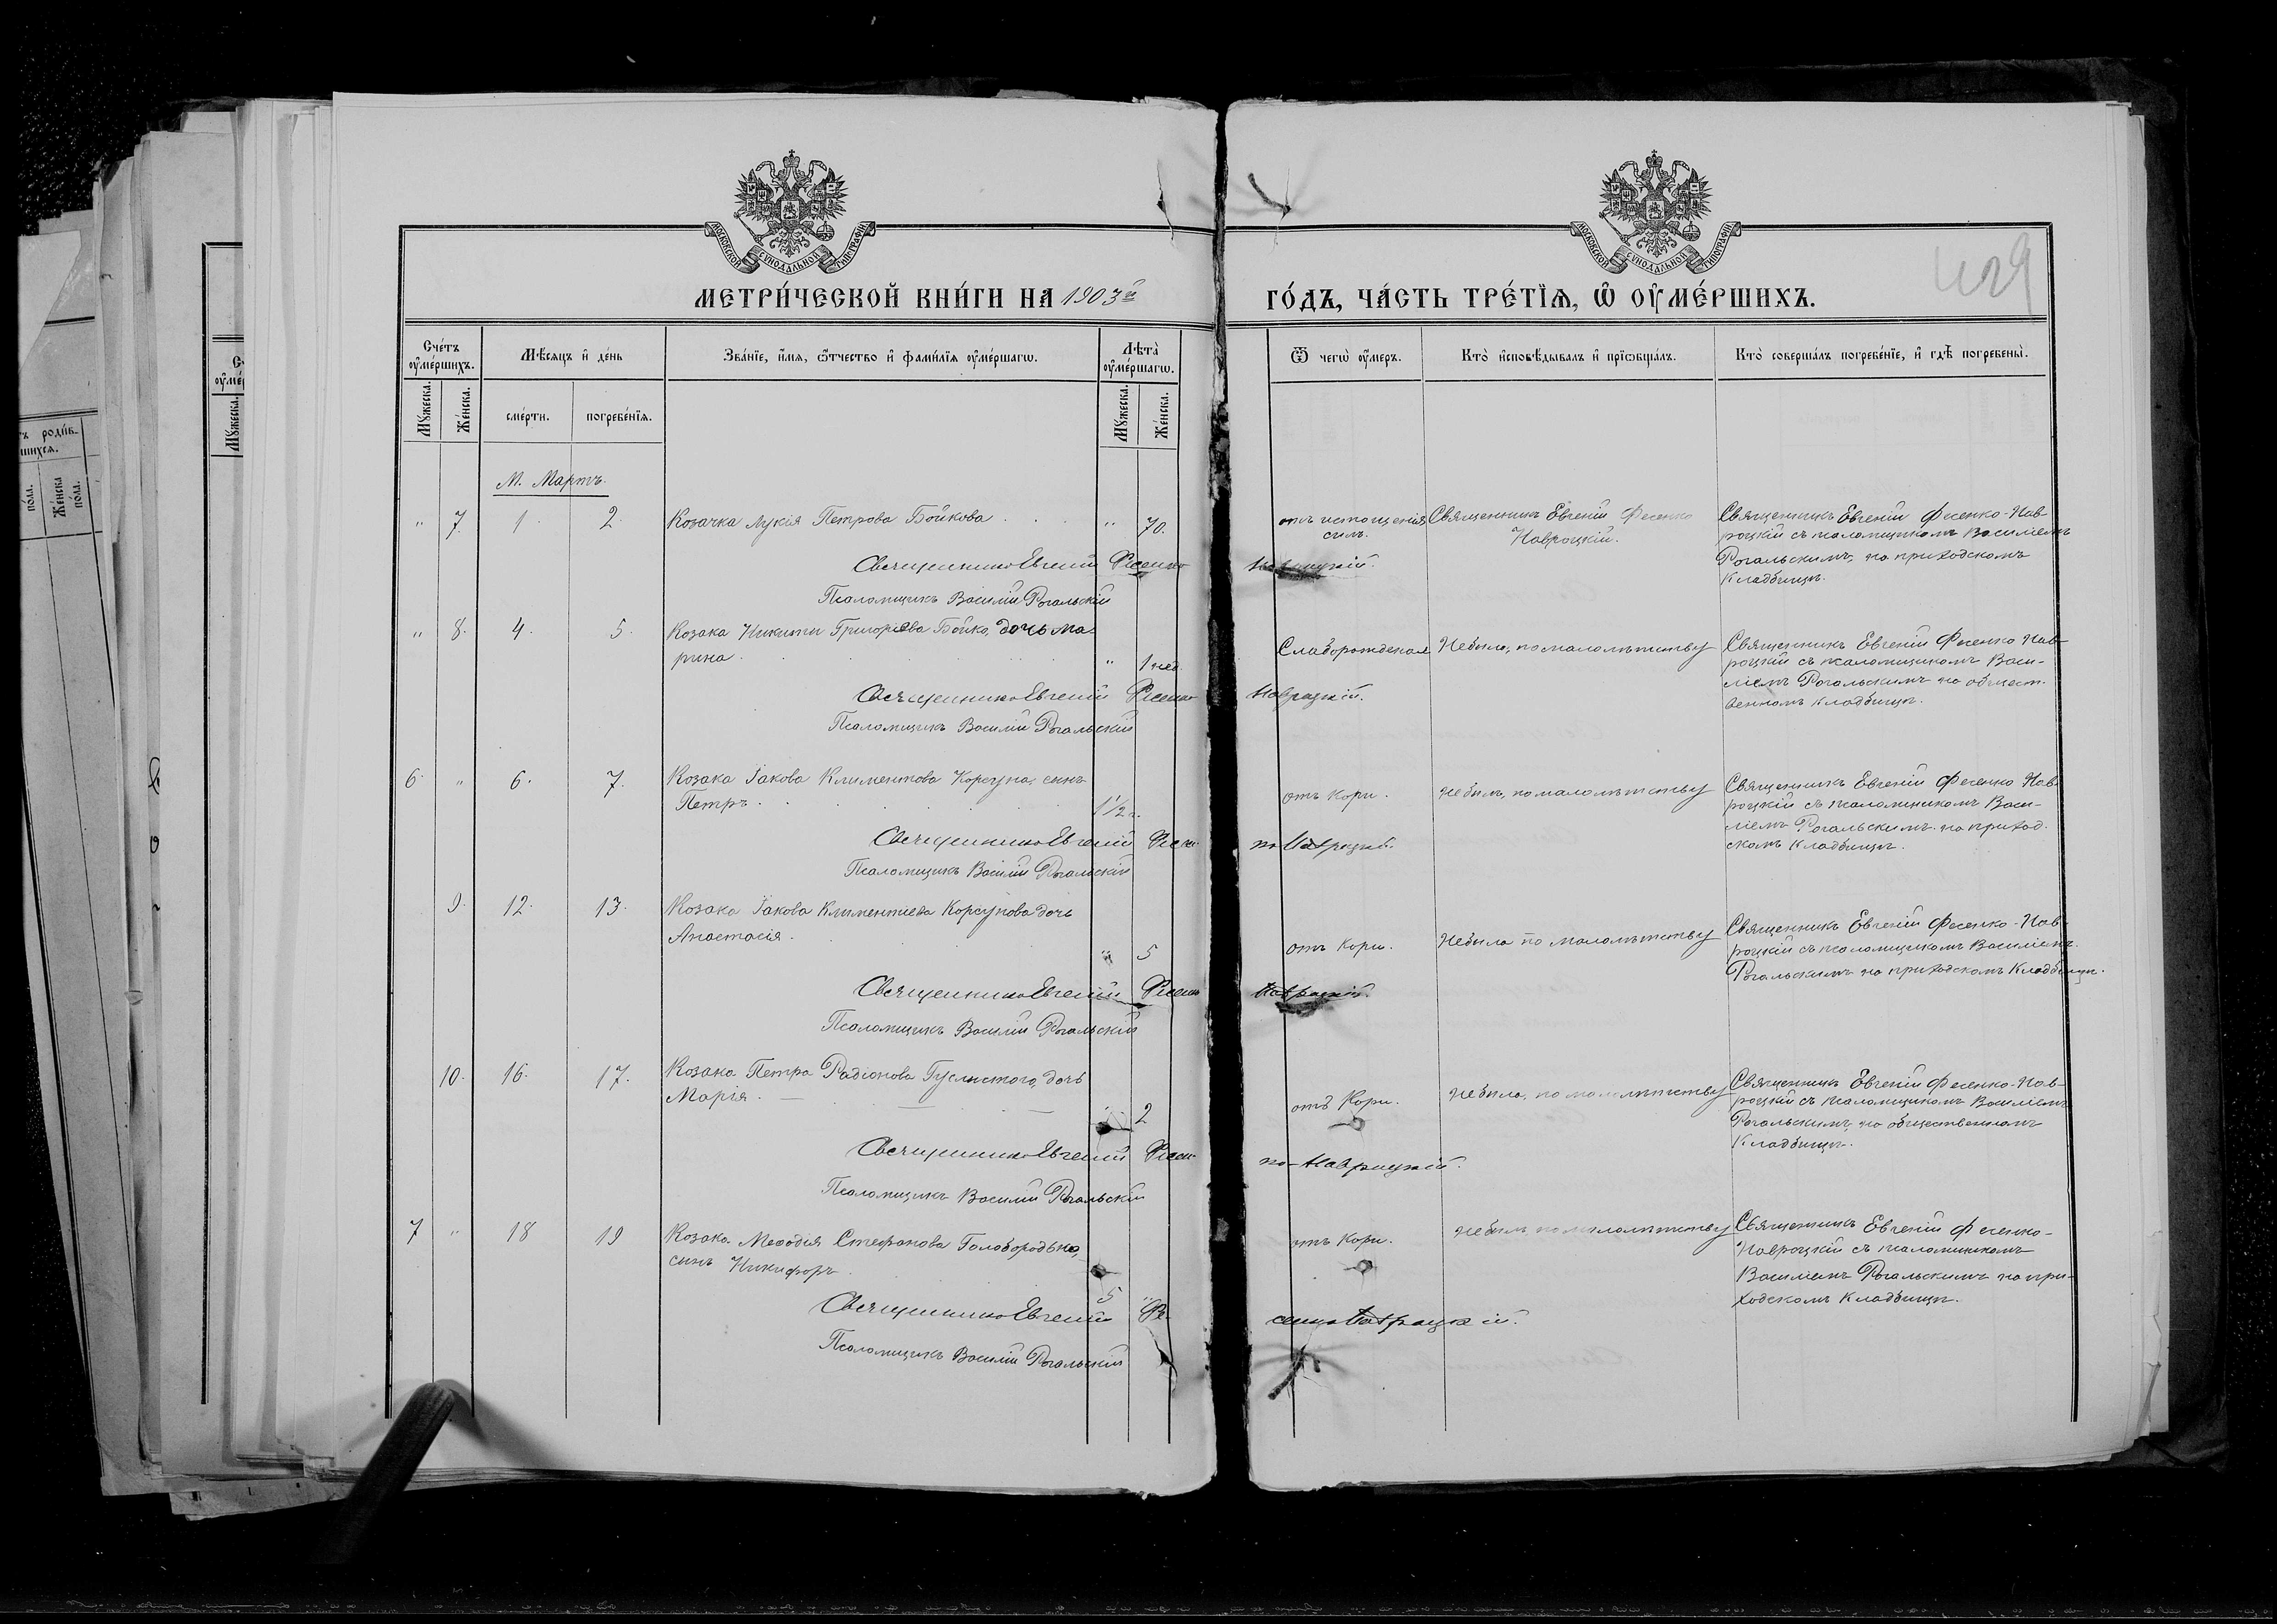 МОСКОВСКОЙ СУНОДАЛЬНОЙ ТИПОГРАФІИ
МОСКОВСКОЙ СУНОДАЛЬНОЙ ТИПОГРАФІИ
МЕТРИ́ЧЕСКОЙ КНИ́ГИ НА 1903й ГО́ДЪ, ЧА́СТЬ ТРЕ́ТЇѦ, Ѡ҆ ОУ҆МЕ́РШИХЪ.
429
Сче́тъ оу҆ме́ршихъ.
Мѣ́сѧцъ и҆ де́нь
Зва́нїе, и҆́мѧ, ѻ҆́тчество и҆ фами́лїѧ оу҆ме́ршагѡ.
Лѣ̀та оу҆ме́ршагѡ.
Ѿ чегѡ̀ оу҆́меръ.
Кто̀ и҆сповѣ́дывалъ и҆ прїѡбща́лъ.
Кто̀ соверша́лъ погребе́нїе, и҆ гдѣ̀ погребены̀.
Мꙋ́жеска.
Же́нска.
сме́рти.
погребе́нїѧ.
Мꙋ́жеска.
Же́нска.
М. Мартъ.
" 7. 1. 2. Козачка Лукія Петрова Бойкова " 70. отъ истощенія силъ. Священникъ Евгеній Фесенко Навроцкій. Священникъ Евгеній Фесенко-Нав-
роцкій съ псаломщикомъ Василіемъ
Рогальскимъ, на приходскомъ
кладбищѣ.
Священникъ Евгеній Фесенко Навроцкій.
Псаломщикъ Василій Рогальскій
" 8. 4. 5. Козака Никиты Григоріева Бойко, дочь Ма-
рина. " 1 нед. Слаборожденая Небыла, по малолѣтству Священникъ Евгеній Фесенко Нав-
роцкій съ псаломщикомъ Васи-
ліемъ Рогальскимъ на общест-
венномъ кладбищѣ.
Священникъ Евгеній Фесенко Навроцкій.
Псаломщикъ Василій Рогальскій
6. " 6. 7. Козака Іакова Климентова Корсуна, сынъ
Петръ. 1½ г. отъ кори. Небылъ, по малолѣтству Священникъ Евгеній Фесенко Нав-
роцкій съ псаломщикомъ Васи-
ліемъ Рогальскимъ на приход-
скомъ кладбищѣ.
Священникъ Евгеній Фесенко Навроцкій.
Псаломщикъ Василій Рогальскій
9. 12. 13. Козака Іакова Климентиева Корсунова дочь
Анастасія. " 5 отъ кори. Небыла по малолѣтству Священникъ Евгеній Фесенко-Нав-
роцкій съ псаломщикомъ Василіемъ
Рогальскимъ на приходскомъ кладбищѣ.
Священникъ Евгеній Фесенко Навроцкій.
Псаломщикъ Василій Рогальскій
10. 16. 17. Козака Петра Радіонова Гуслистого, дочь
Марія. 2 отъ кори. Небыла, по малолѣтству Священникъ Евгеній Фесенко-Нав-
роцкій съ псаломщикомъ Василіемъ
Рогальскимъ, на общественномъ
кладбищѣ.
Священникъ Евгеній Фесенко-Навроцкій.
Псаломщикъ Василій Рогальскій
7 " 18 19 Козака Меѳодія Стефанова Голобородька,
сынъ Никифоръ 5 " отъ кори. Небылъ по малолѣтству Священникъ Евгеній Фесенко-
Навроцкій съ псаломщикомъ
Василіемъ Рогальскимъ на при-
ходскомъ кладбищѣ.
Священникъ Евгеній Фесенко Навроцкій.
Псаломщикъ Василій Рогальскій